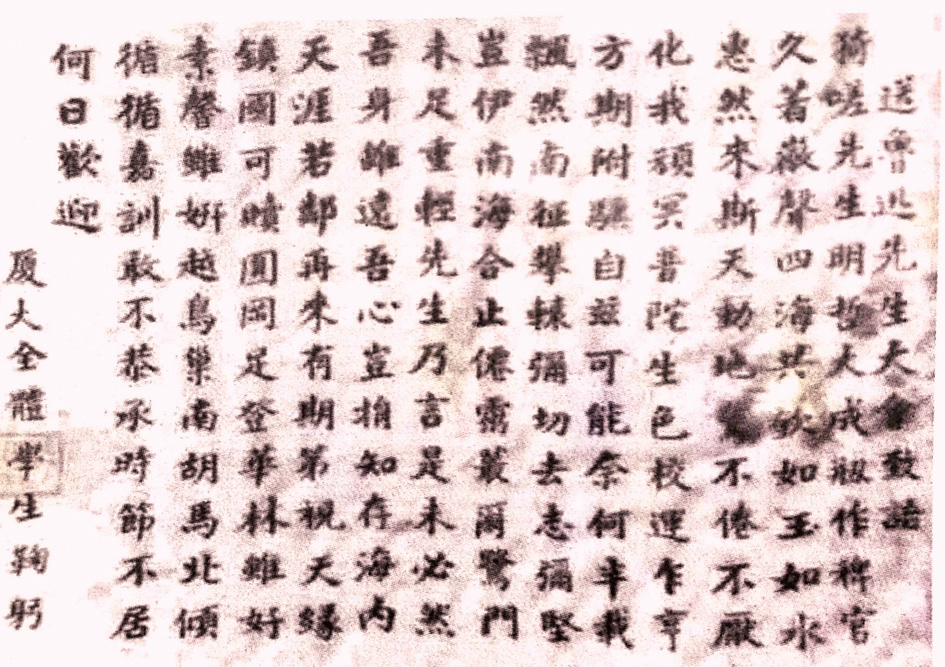 送魯迅先生大會致語
猗嗟先生明哲大成報作稗官
久著徽聲四海共欽如玉如水
惠然來斯天動地不倦不厭
化我頑冥普陀生色校運乍亨
方期附驥自茲可能奈何半載
飄然南征攀轅彌切去志彌堅
豈伊南海合止僊靈叢爾鷺門
未足重輕先生乃言是未必然
吾身雖遠吾心豈捐知存海內
天涯若鄰再來有期第視天緣
鎮國可贖圓岡足登華林雖好
素馨雖妍越鳥巢南胡馬北傾
循循嘉訓敢不恭承時節不居
何日歡迎
廈大全體學生鞠躬